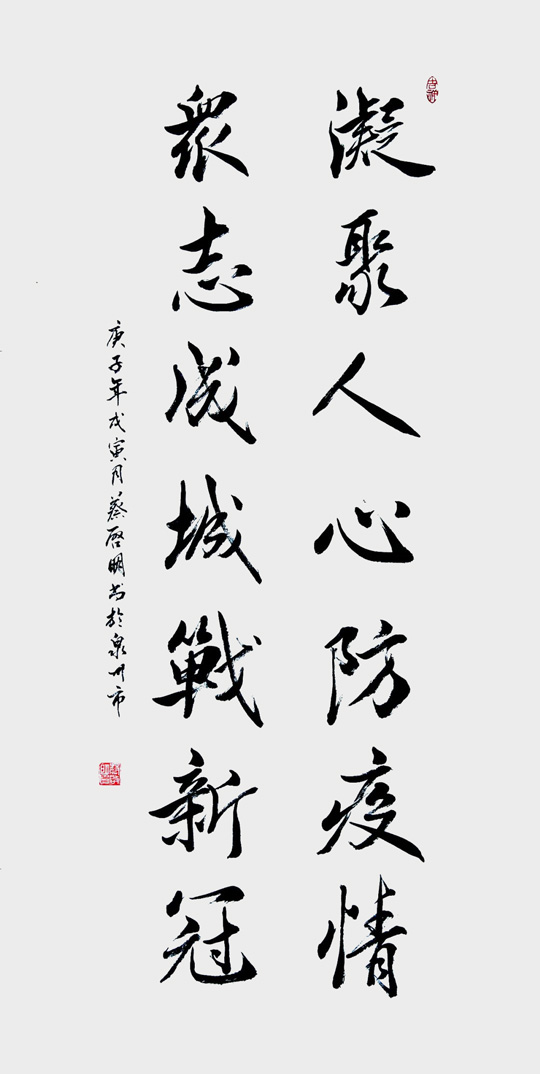 凝聚人心防疫情
衆志成城戰新冠
庚子年戊寅月蔡啓明书於泉州市